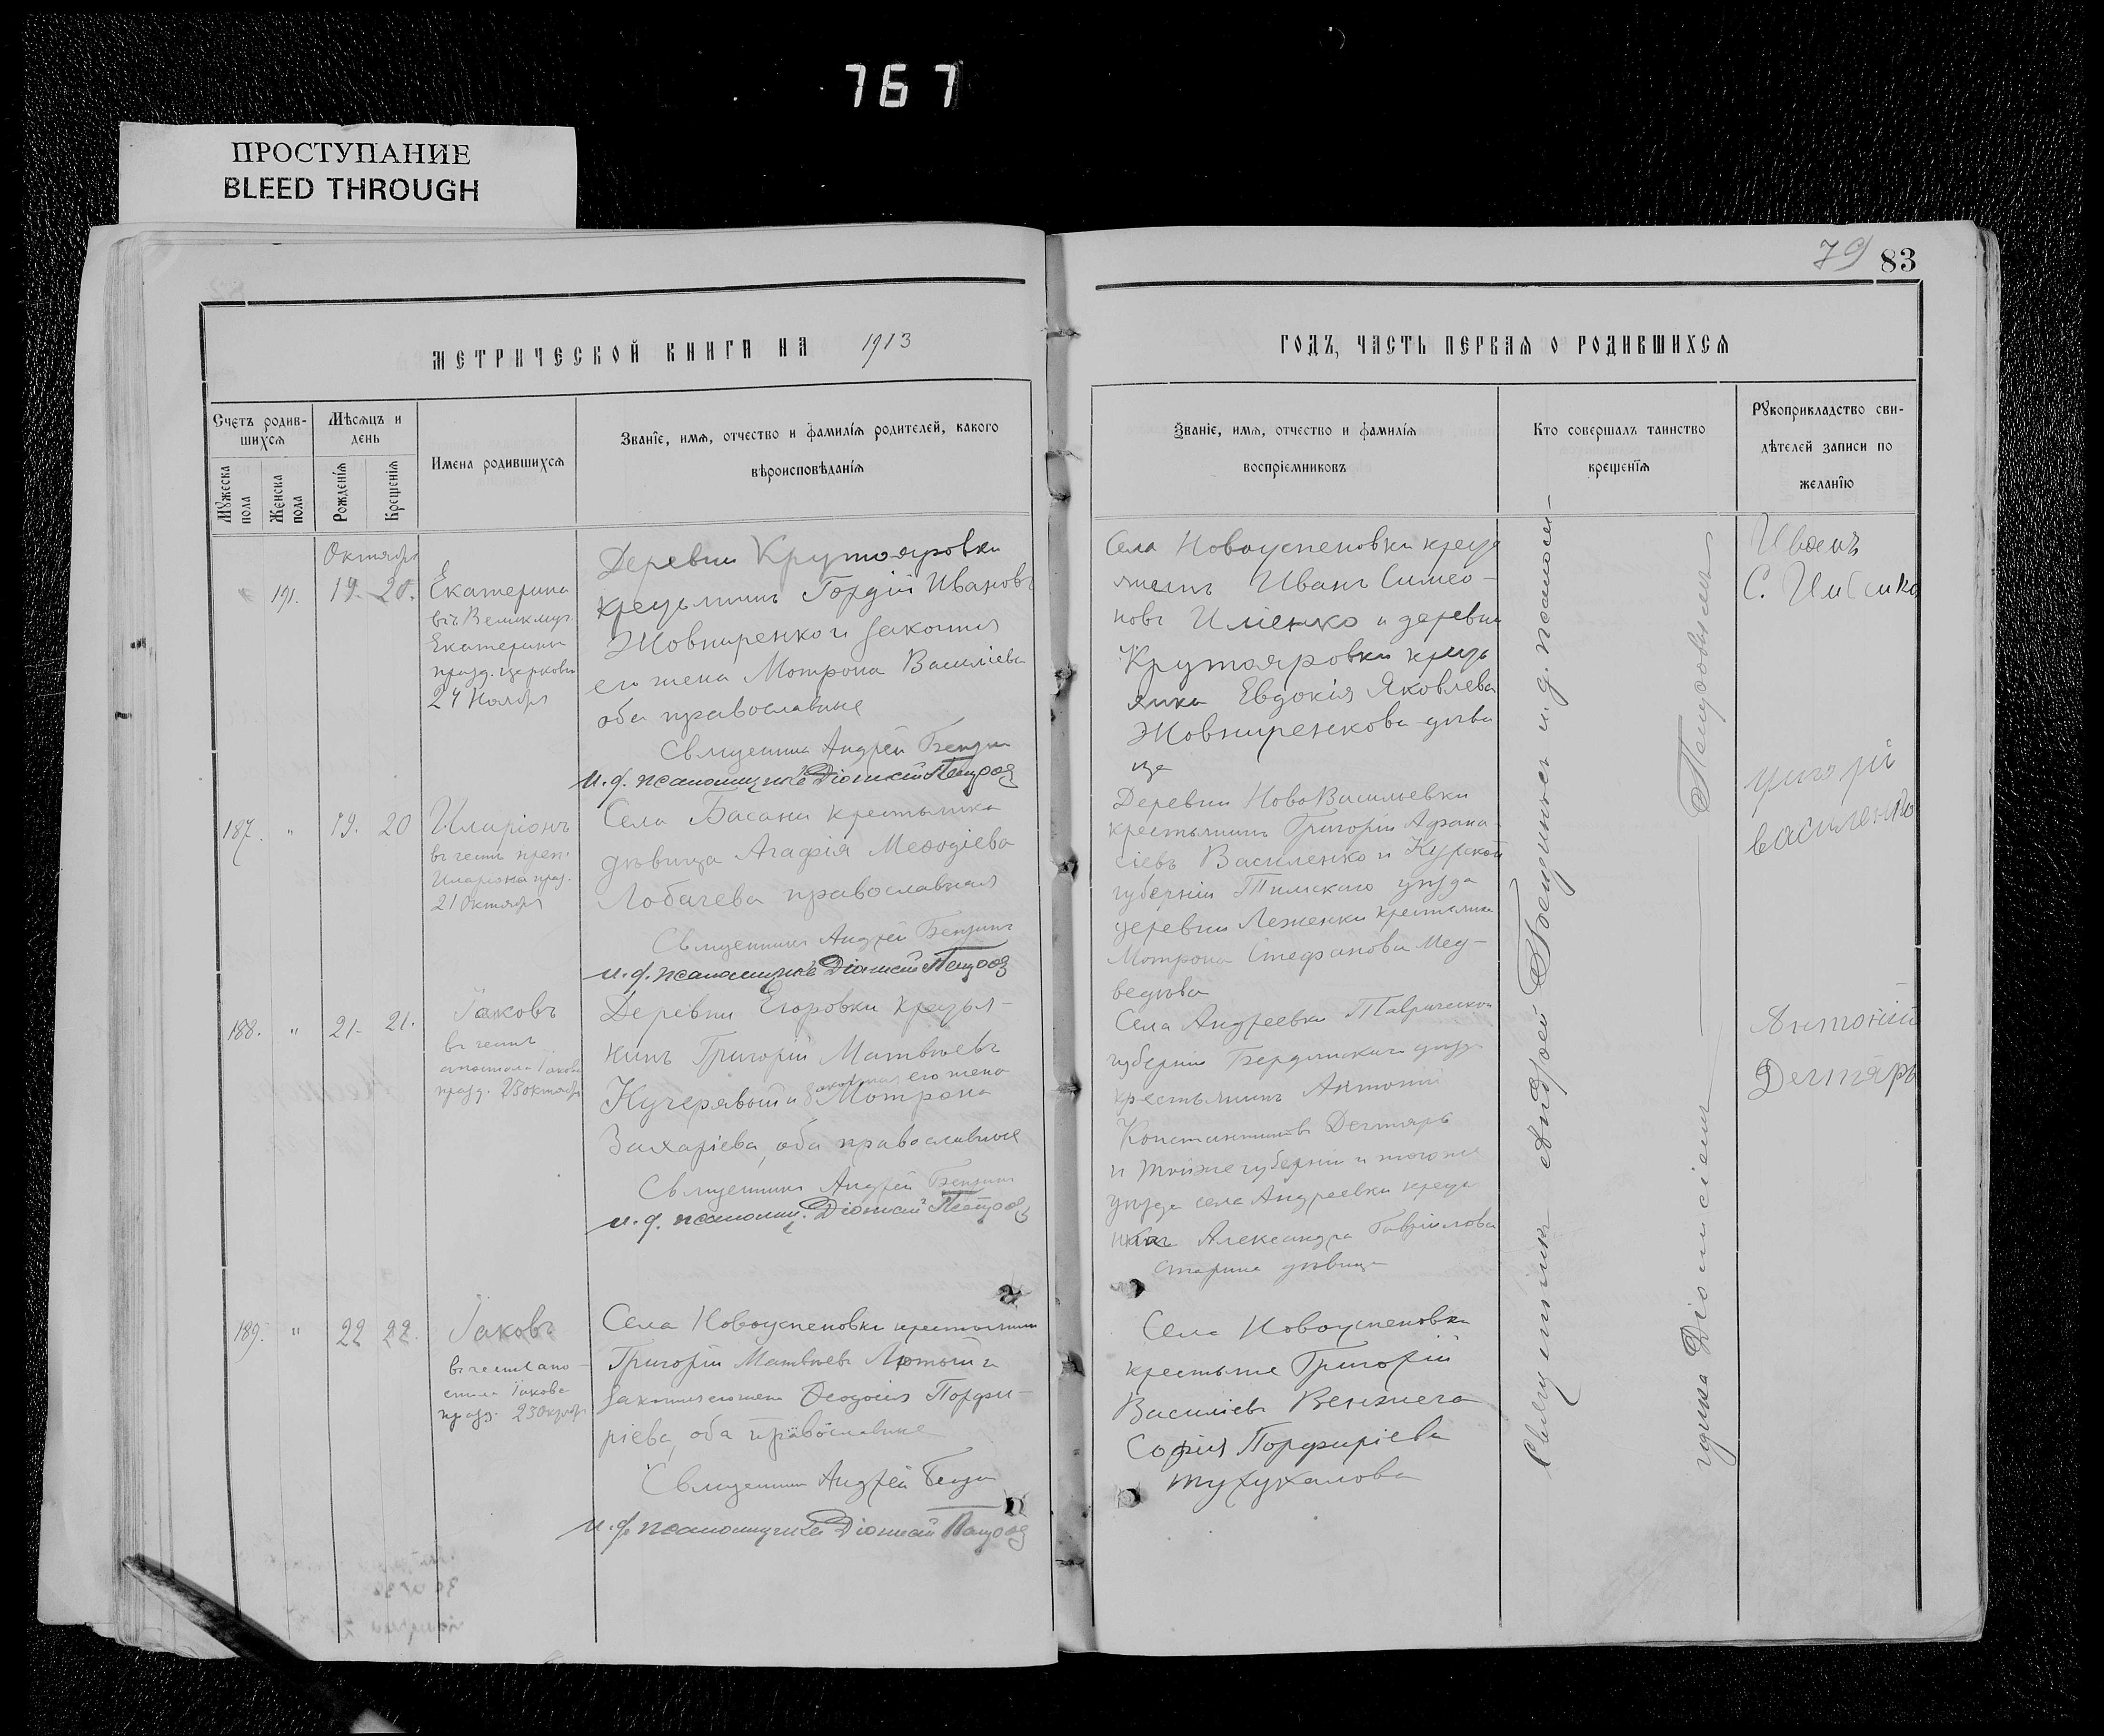 767
ПРОСТУПАНИЕ
BLEED THROUGH
79 83
МЕТРИЧЕСКОЙ КНИГИ НА 1913
ГОДЪ, ЧАСТЬ ПЕРВАЯ О РОДИВШИХСЯ
Счетъ родив-
шихся
Мужеска пола
Женска пола
Мѣсяцъ и
день
Рожденія
Крещенія
Имена родившихся
Званіе, имя, отчество и фамилія родителей, какого
вѣроисповѣданія
Званіе, имя, отчество и фамилія
воспріемниковъ
Кто совершалъ таинство
крещенія
Рукоприкладство сви-
дѣтелей записи по
желанію
Октября
191. 19. 20.
Екатерина
въ Великмуч.
Екатерины
празд. церковью
24 Ноября
Деревни Крутояровки
крестьянинъ Гордій Ивановъ
Жовниренко и законная
его жена Мотрона Василіева
оба православные
Священникъ Андрей
и. д. псаломщика Діонисій
Села Новоуспеновки крестъ
янинъ Иванъ Симео-
новъ и деревни
Крутояровки кресть
янка Евдокія Яковлева
Жовниренкова дѣви
ца
Иванъ
С.
187. " 19. 20
Иларіонъ
въ честь преп.
Иларіона праз.
21 Октября
Села Басани крестьянка
дѣвица Агафія Меѳодіева
Лобачева православная
Священникъ Андрей
и. д. псаломщика Діонисій
Деревни НовоВасильевки
крестьянинъ Григорій Афана-
сіевъ Василенко и Курской
губерніи Тимскаго уѣзда
деревни Леженки крестьянка
Мотрона Стефанова Мед-
ведѣва
григорій
василенко
188. " 21. 21.
Іаковъ
въ честь
апостола Іакова
празд. 23 октября
Деревни Егоровки крестья-
нинъ Григорій Матвѣевъ
Кучерявый и законная его жена Мотрона
Захаріева, оба православные
Священникъ Андрей
и. д. псаломщ. Діонисій
Села Андреевки Таврической
губерніи Бердянскаго уѣзда
крестьянинъ Антоній
Константиновъ Дегтярь
и тойже губерніи и тогоже
уѣзда села Андреевки кресть
янка Александра Гавріилова
Старина дѣвица
Антоній
Дегтярь
189. " 22 22.
Іаковъ
въ честь апо-
стола Іакова
празд. 23 Октября
Села Новоуспеновки крестьянинъ
Григорій Матвѣевъ Лютый и
законная его жена Ѳеодосія Порфи-
ріева, оба православные
Священникъ Андрей
и. д. псаломщика Діонисій
Села Новоуспеновки
крестьяне Григорій
Василіевъ Венжега
Софія Порфиріева
Священникъ Андрей и. д. псалом-
щика Діонисіемъ